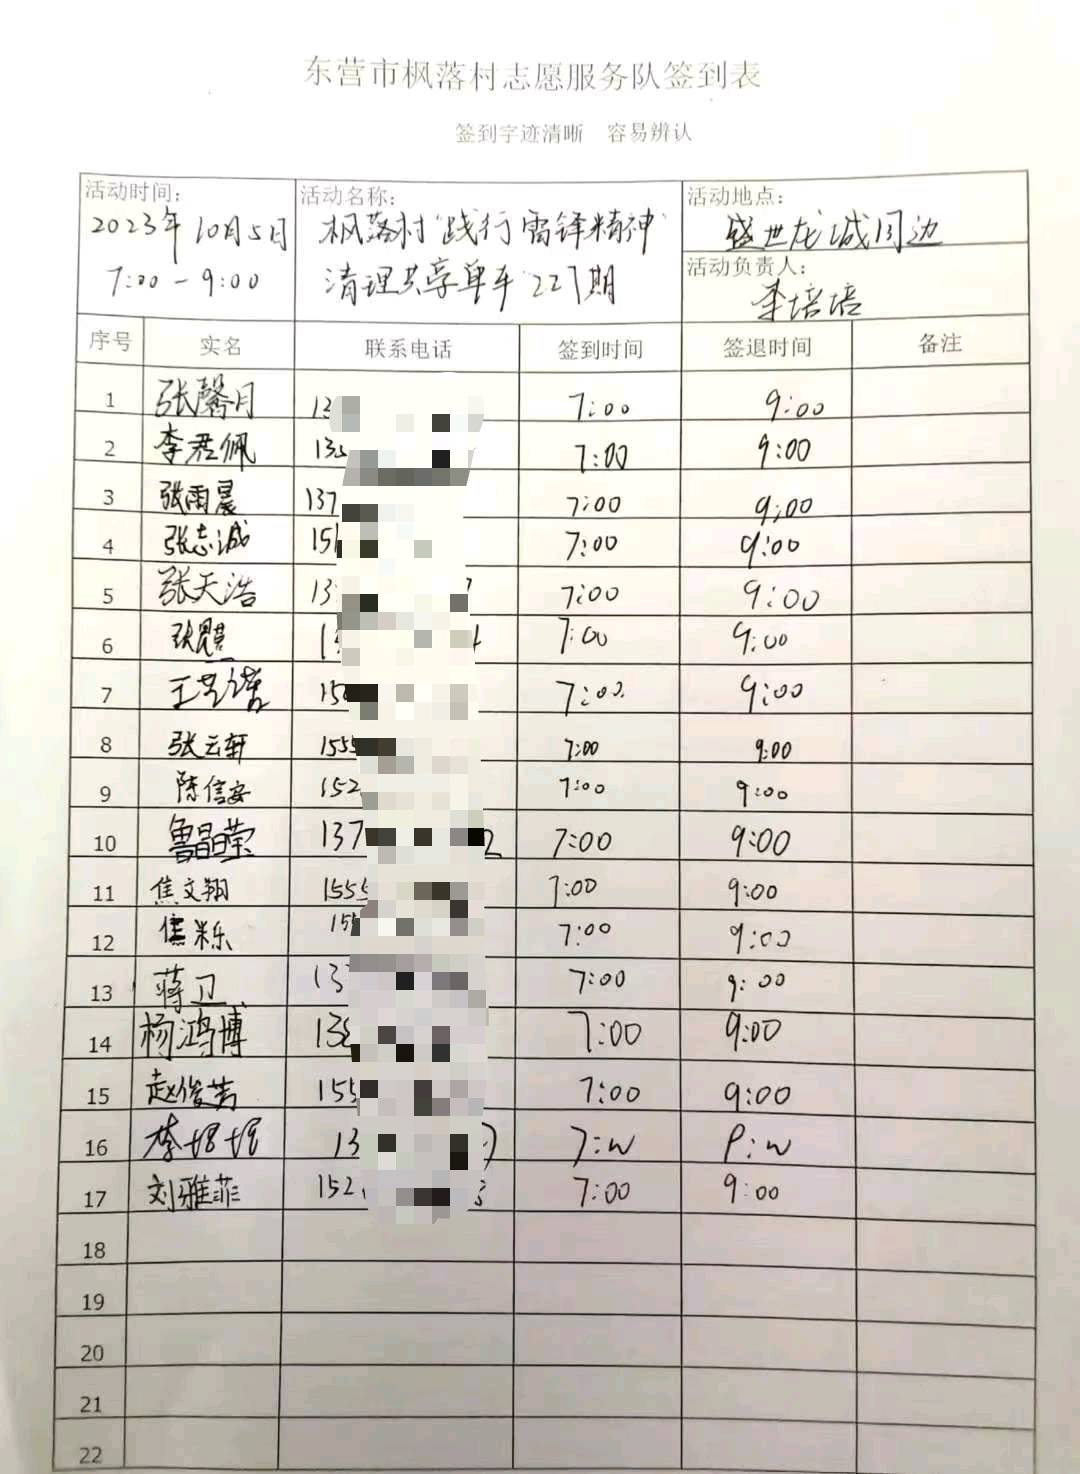 东营市枫落村志愿服务队签到表
签到字迹清晰 容易辨认
活动时间：
2023年10月5日
7:00-9:00
活动名称：
枫落村“践行雷锋精神”
清理共享单车227期
活动地点：
盛世龙城周边
活动负责人：
李培培
序号 实名 联系电话 签到时间 签退时间 备注
1 张馨月 13 7:00 9:00
2 李君佩 135 7:00 9:00
3 张雨晨 137 7:00 9:00
4 张志诚 15 7:00 9:00
5 张天浩 13 7:00 9:00
6 1 7:00 9:00
7 15 7:00 9:00
8 张云轩 1555 7:00 9:00
9 陈信安 152 7:00 9:00
10 鲁晶莹 137 2 7:00 9:00
11 焦文翔 1555 7:00 9:00
12 焦烁 155 7:00 9:00
13 蒋卫 13 7:00 9:00
14 杨鸿博 13 7:00 9:00
15 赵俊芳 155 7:00 9:00
16 李培培 13 7:00 9:00
17 刘雅菲 152 7:00 9:00
18
19
20
21
22